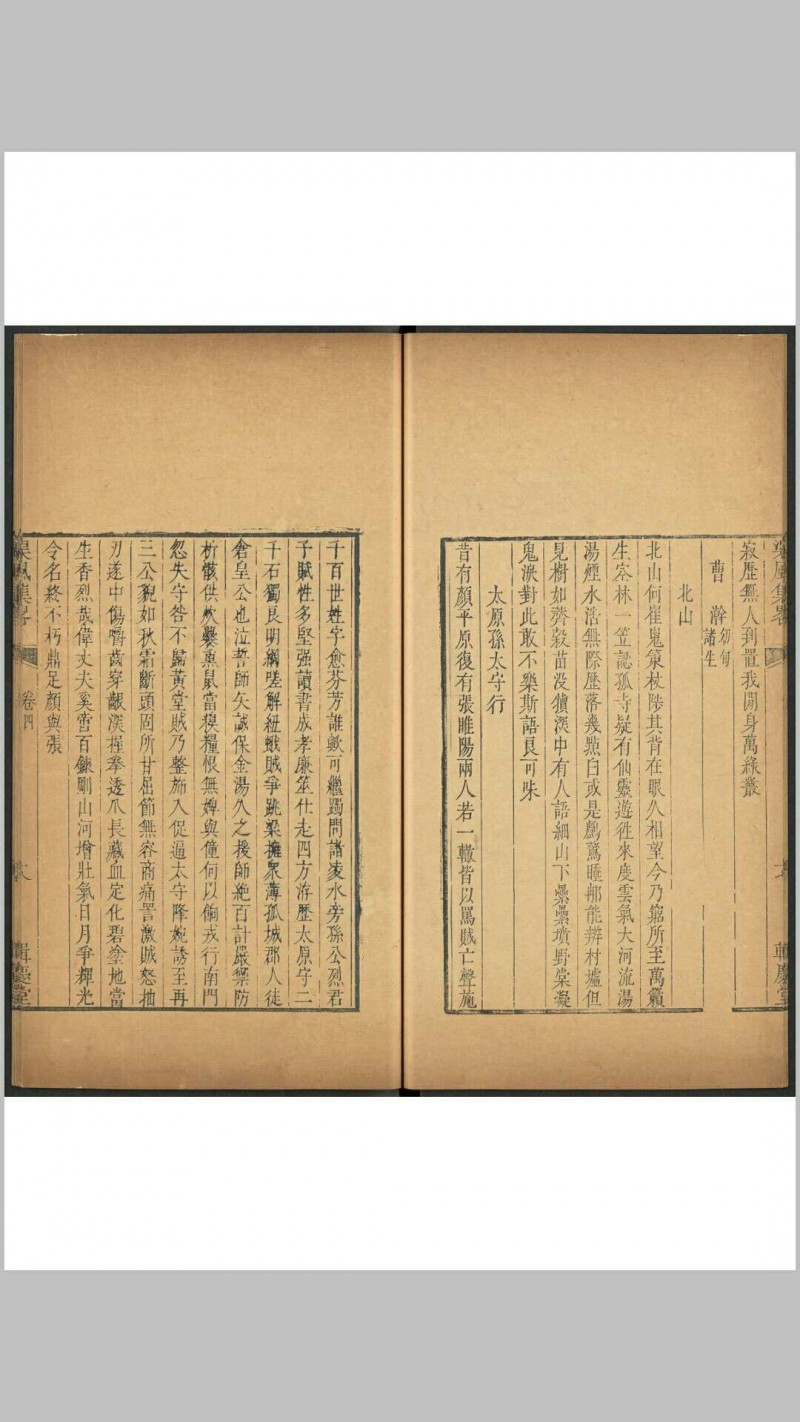 寂歴無人到置我閒身萬綠叢
曹澣
幼旬
諸生
北山
北山何崔嵬策杖陟其背在眼久相望今乃窮所至萬籟
生容林一笠認孤寺疑有仙靈遊徃來度雲氣大河流湯
湯煙水浩無際歴落幾㸃白或是鷗鷺睡郙能辨村墟但
見樹如薺穀苗没犢深中有人語細山下纍纍墳野棠凝
鬼淚對此敢不樂斯語良可味
太原孫太守行
昔有顔平原復有張睢陽兩人若一轍皆以罵賊亡聲施
千百世姓字愈芬芳誰歟可繼躅問諸凌水旁孫公烈君
子賦性多堅强讀書成孝廉筮仕走四方游歴太原守二
千石獨良明綱嗟解紐蛾賊爭跳梁擁衆薄孤城郡人徒
倉皇公也泣誓師矢誠保金湯久之援師絶百計嚴禦防
析骸供炊爨熏鼠當糗糧恨無婢與僮何以餉戎行南門
忽失守咎不歸黄堂賊乃整斾入促逼太守降婉誘至再
三公貌如秋霜斷頭固所甘屈節無容商痛詈激賊怒抽
刃遂中傷嚼齒穿齦深握拳透爪長藏血定化碧塗地當
生香烈哉偉丈夫奚啻百鍊剛山河增壯氣日月爭輝光
令名終不朽鼎足顔與張
風集畧
卷四
輯慶堂